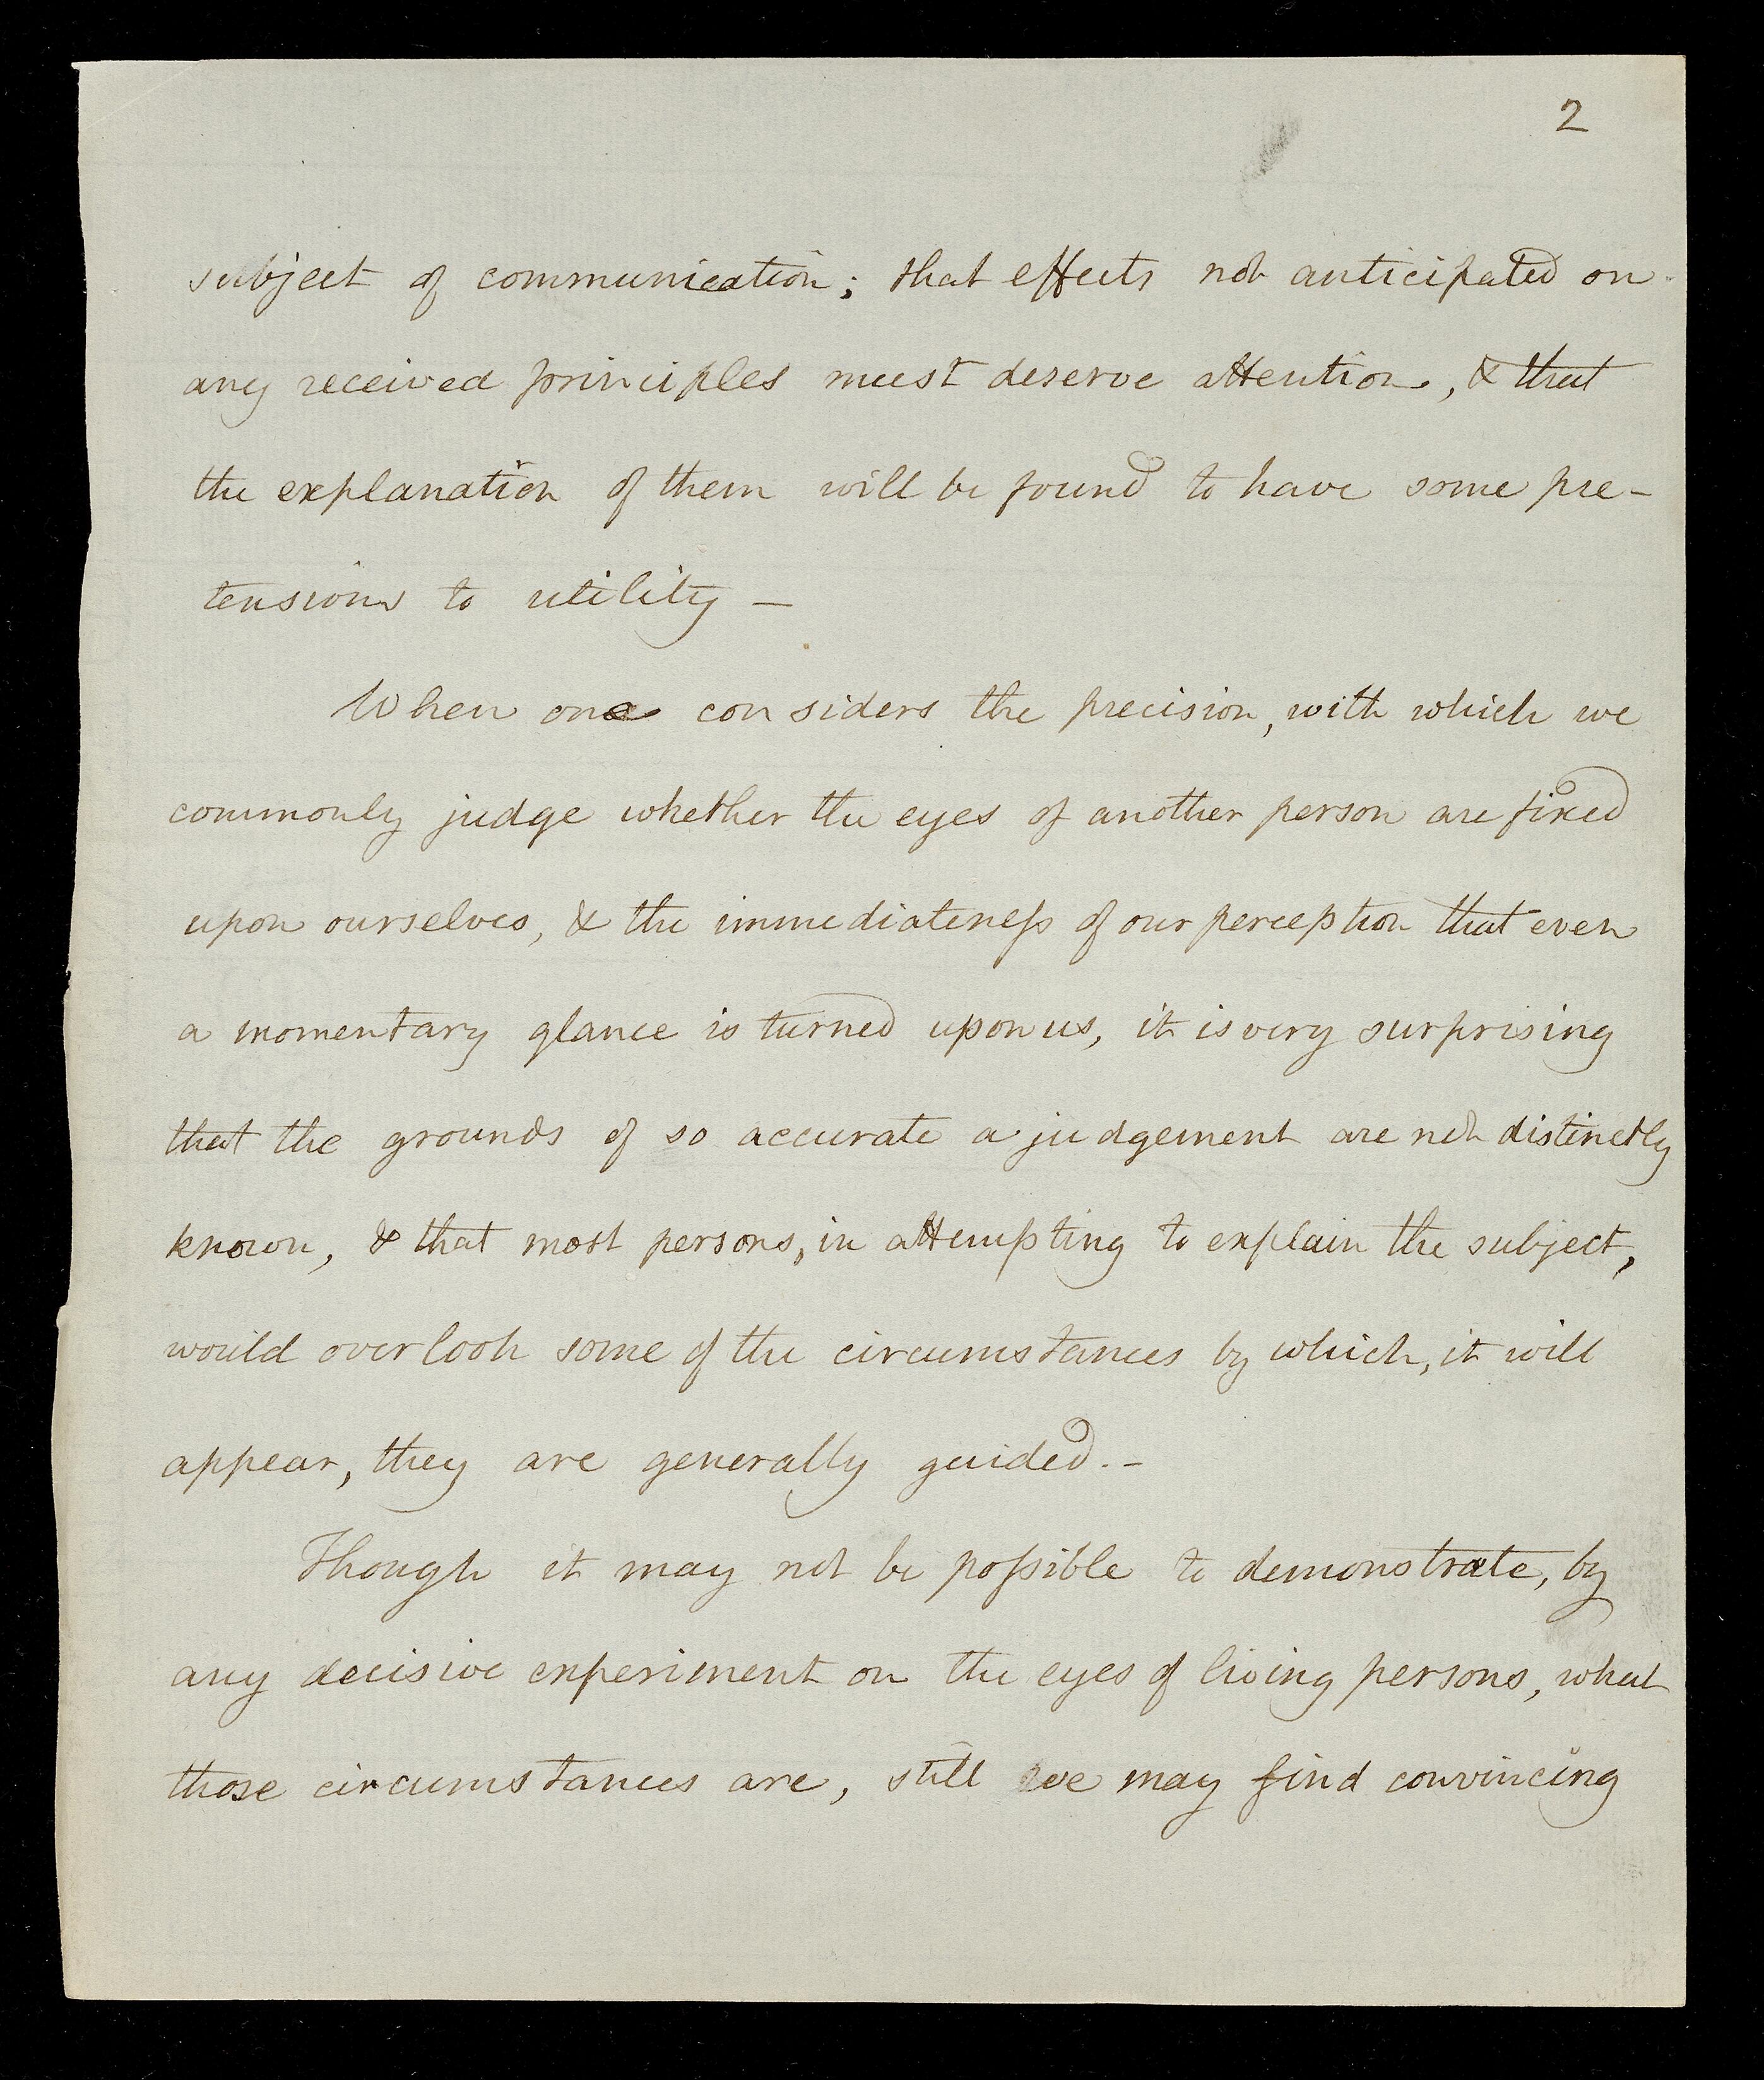 2
subject of communication; that effects not anticipated on
any received principles must deserve attention, & that
the explanation of them will be found to have some pre-
tensions to utility —
When one considers the precision, with which we
commonly judge whether the eyes of another person are fixed
upon ourselves, & the immediateneſs of our perception that even
a momentary glance is turned upon us, it is very surprising
that the grounds of so accurate a judgement are not distinctly
known, & that most persons, in attempting to explain the subject,
would overlook some of the circumstances by which, it will
appear, they are generally guided. -
Though it may not be poſsible to demonstrate, by
any decisive experiment on the eyes of living persons, what
those circumstances are, still we may find convincing